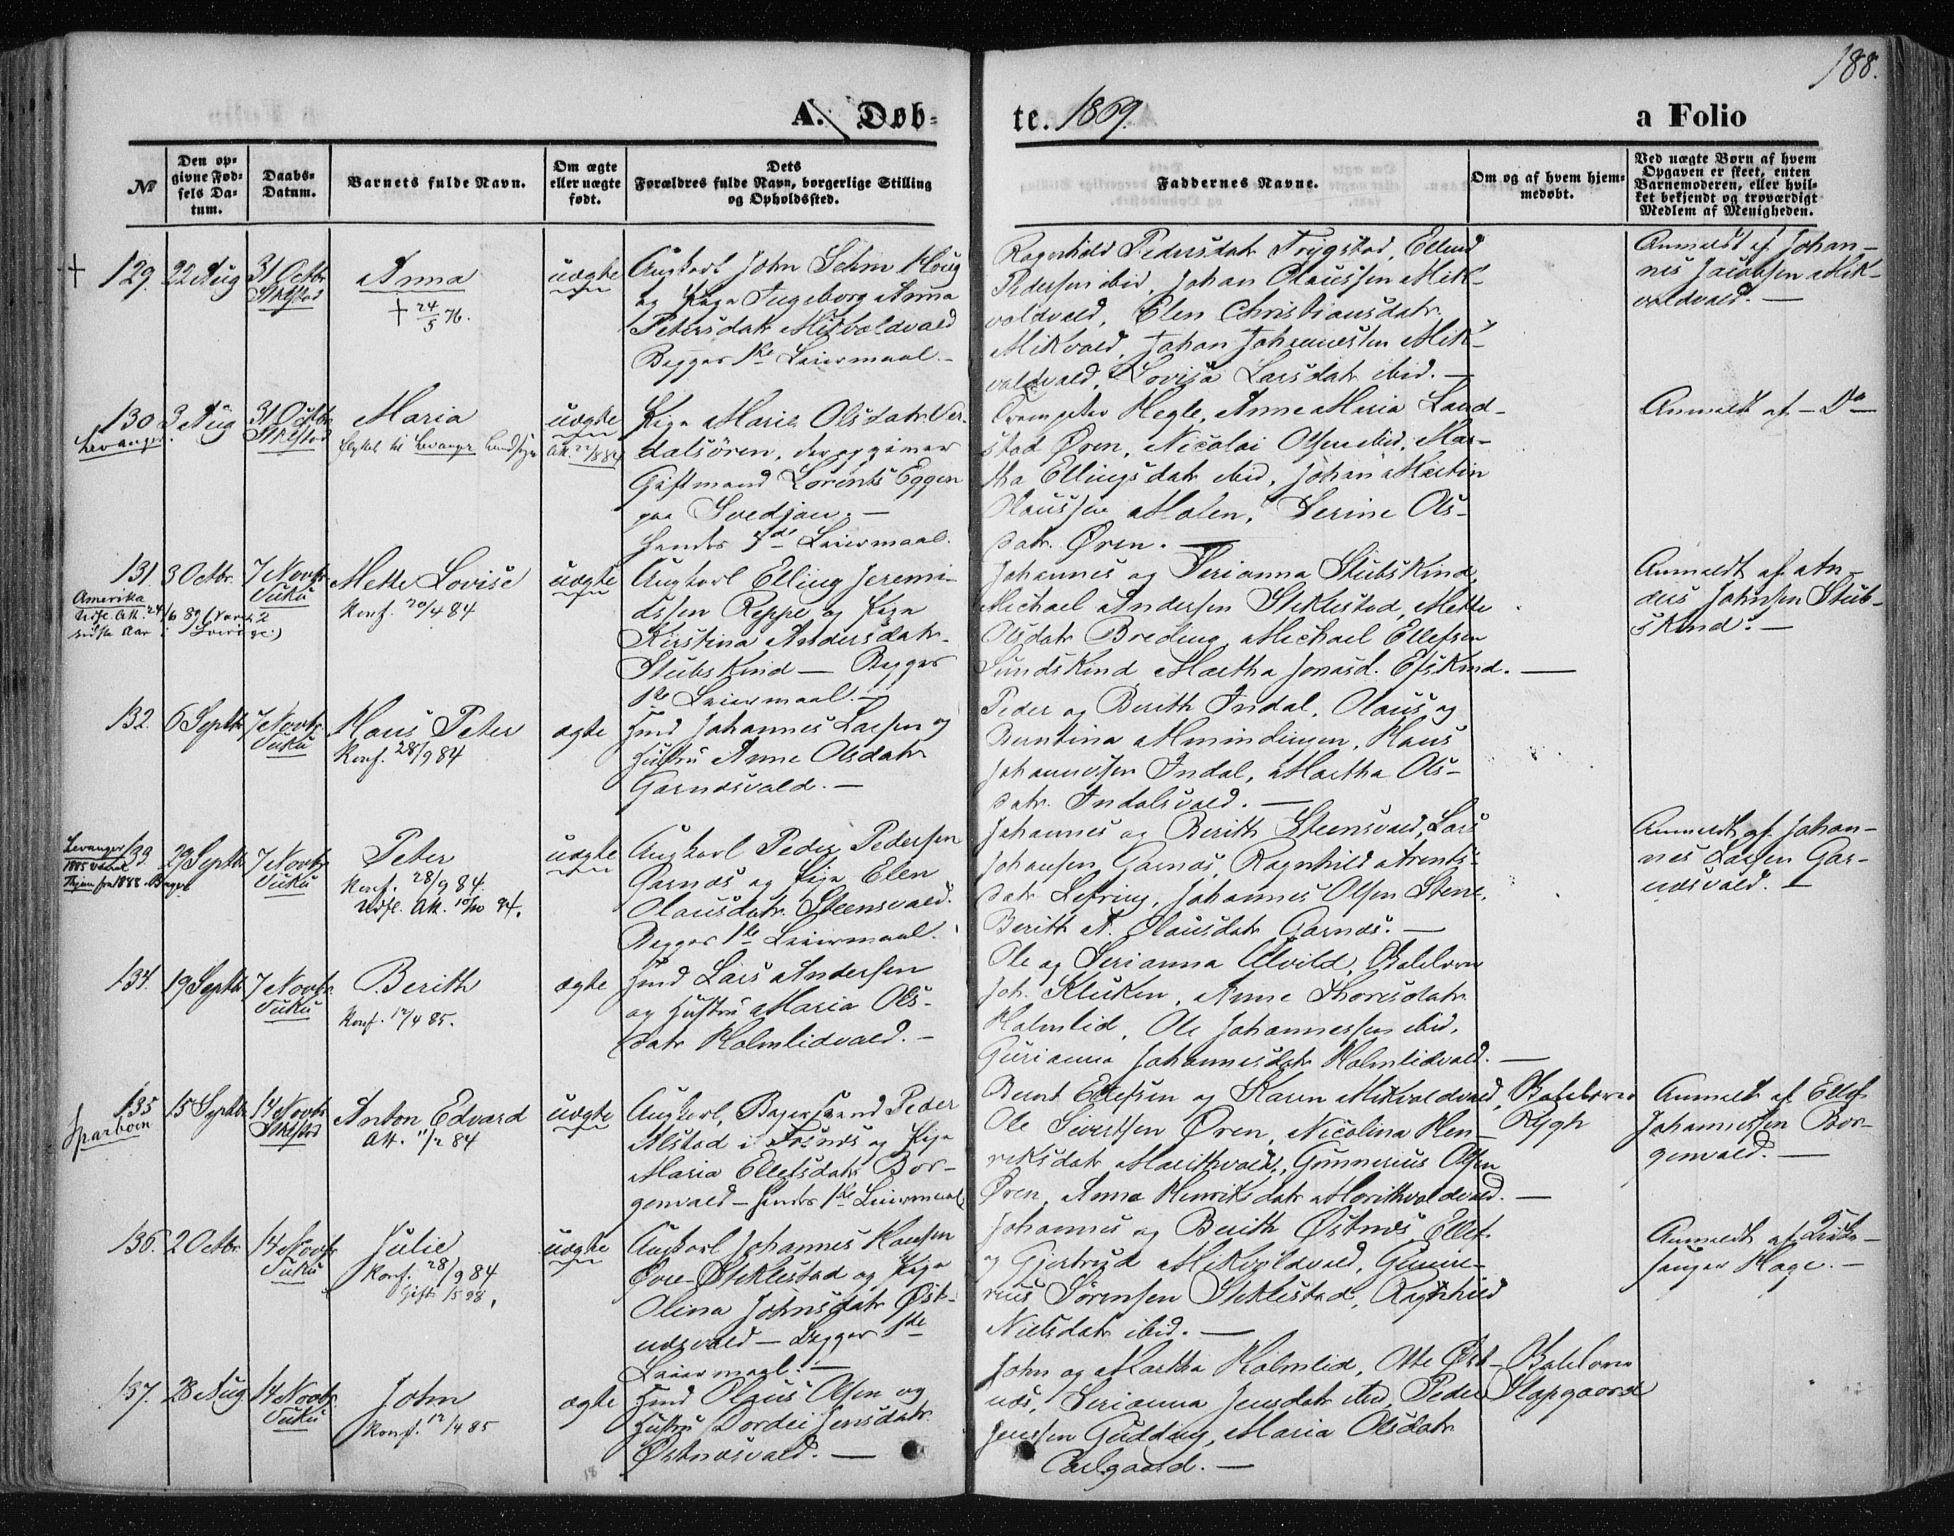 188.
A. Døb-
te. 1869.
a Folio
No
Den op-
givne Fød-
sels Da-
tum.
Daabs-
Datum.
Barnets fulde Navn.
Om ægte
eller uægte
født.
Dets
Forældres fulde Navn, borgerlige Stilling
og Opholdssted.
Faddernes Navne.
Om og af hvem hjem-
medøbt.
Ved uægte Børn af hvem
Opgaven er skeet, enten
Barnemoderen, eller hvil-
ket bekjendt og troværdigt
Medlem af Menigheden.
+ 129. 22 Aug
31 Octbr
Stklstad
Anna
+ 24/5 76.
uægte
Ungkarl John Sehm Houg
og Pige Ingeborg Anna
Petersdatr Mikvoldvald
Begges 1ste Leiermaal. -
Ragnhild Pedersdatr Trygstad, Ellend
Pedersen ibid, Johan Olaussen Mik-
voldvald, Elen Christiansdatr
Mikvold, Johan Johannessen Mik-
valdvald, Lovisa Larsdatr ibid. -
Anmeldt af Johan-
nes Jacobsen Mik-
voldvald. -
130 3 Aug
Levanger.
31 Octbr
Stklstad
Maria
flyttet til Levanger Landsogn
uægte
Pige Maria Olsdatr Ver-
dalsören, der opgiver
Giftmand Lorents Eggen
paa Svedjan. -
Hendes 3die Leiermaal.
Trompeter Hegle, Anne Maria Land-
stad Øren, Nicolai Olsen ibid, Mar-
tha Ellingsdatr ibid, Johan Martin
Olaussen Molen, Serine Ols-
datr. Øren. -
Anmeldt af - Do -
131. 3 Octbr.
Amerika
7 Novbr
Vuku
Mette Lovise
Konf. 20/4 84
uægte
Ungkarl Elling Jeremi-
assen Reppe og Pige
Kirstina Andersdatr
Stubskind - Begges
1ste Leiermaal. -
Johannes og Serianna Stubskind,
Michael Andersen Stiklestad, Mette
Olsdatr Breding, Michael Ellefsen
Sundskind, Martha Jonasd. Efskind. -
Anmeldt af An-
ders Johnsen Stub-
skind. -
132. 6 Septbr
7 Novbr
Vuku
Hans Peter
Konf. 28/9 84
ægte
Hmd Johannes Larsen og
Hustru Anne Olsdatr
Garnæsvald. -
Peder og Berith Indal, Olaus og
Berntina Almindingen, Hans
Johannesen Indal, Martha Ols-
datr. Indalsvald. -
Levanger
133. 29 Septbr
7 Novbr
Vuku
Peter
Konf. 28/9 84.
Udfl. Att. 10/10 94.
uægte
Ungkarl Peder Pedersen
Garnæs og Pige Elen
Olausdatr Steensvald.
Begges 1ste Leiermaal.
Johannes og Berith Steensvald, Lars
Johansen Garnæs, Ragnhild Arents-
datr Lefring, Johannes Olsen Stene,
Berith A. Olausdatr Garnæs. -
Anmeldt af Johan-
nes Larsen Gar-
næsvald. -
134. 19 Septbr
7 Novbr.
Vuku
Berith
Konf. 12/4 85.
ægte
Hmd Lars Andersen
og Hustru Maria Ols-
datr Holmlidvald. -
Ole og Serianna Ulvild,
Joh. Kluken, Anne Thoresdatr
Holmlid, Ole Johannessen ibid,
Gurianna Johannesdatr Holmlidvald. -
135 15 Septbr
Sparboen
14 Novbr
Stklstad
Anton Edvard
Att. 11/2 84
uægte
Ungkarl, Bagersvend Peder
Alstad i Fosnæs og Pige
Maria Ellefsdatr Bor-
genvald - Hendes 1ste Leiermaal
Bernt Ellefsen og Karen Mikvoldvald,
Ole Sivertsen Øren, Nicolina Hen-
riksdatr Marithvald, Gunnerius Olsen
Øren, Anna Henriksdatr Morithvoldvald. -
Rygh
Anmeldt af Ellef
Johannessen Bor-
genvald. -
136. 2 Octbr
14 Novbr
Vuku
Julie
Konf. 28/9 84
Gift
uægte
Ungkarl Johannes Hansen
Øvre-Stiklestad og Pige
Olina Johnsdatr Øst-
næsvald - Begges 1ste
Leiermaal. -
Johannes og Berith Østnæs, Ellef
og Gjertrud Mikvoldvald, Gunne-
rius Sörensen Stiklestad, Ragnhild
Nielsdatr ibid. -
Anmeldt af Kirke-
sanger Hage. -
137. 28 Aug
14 Novbr.
Vuku
John
Konf. 12/4 85
ægte
Hmd Olaus Olsen og
Hustru Dordei Jensdatr
Østnæsvald. -
John og Martha Holmlid, Otte Øst-
næs, Serianna Jensdatr ibid, Peder
Jenssen Gudding, Maria Olsdatr
Carlgaard. -
Slapgaard
18